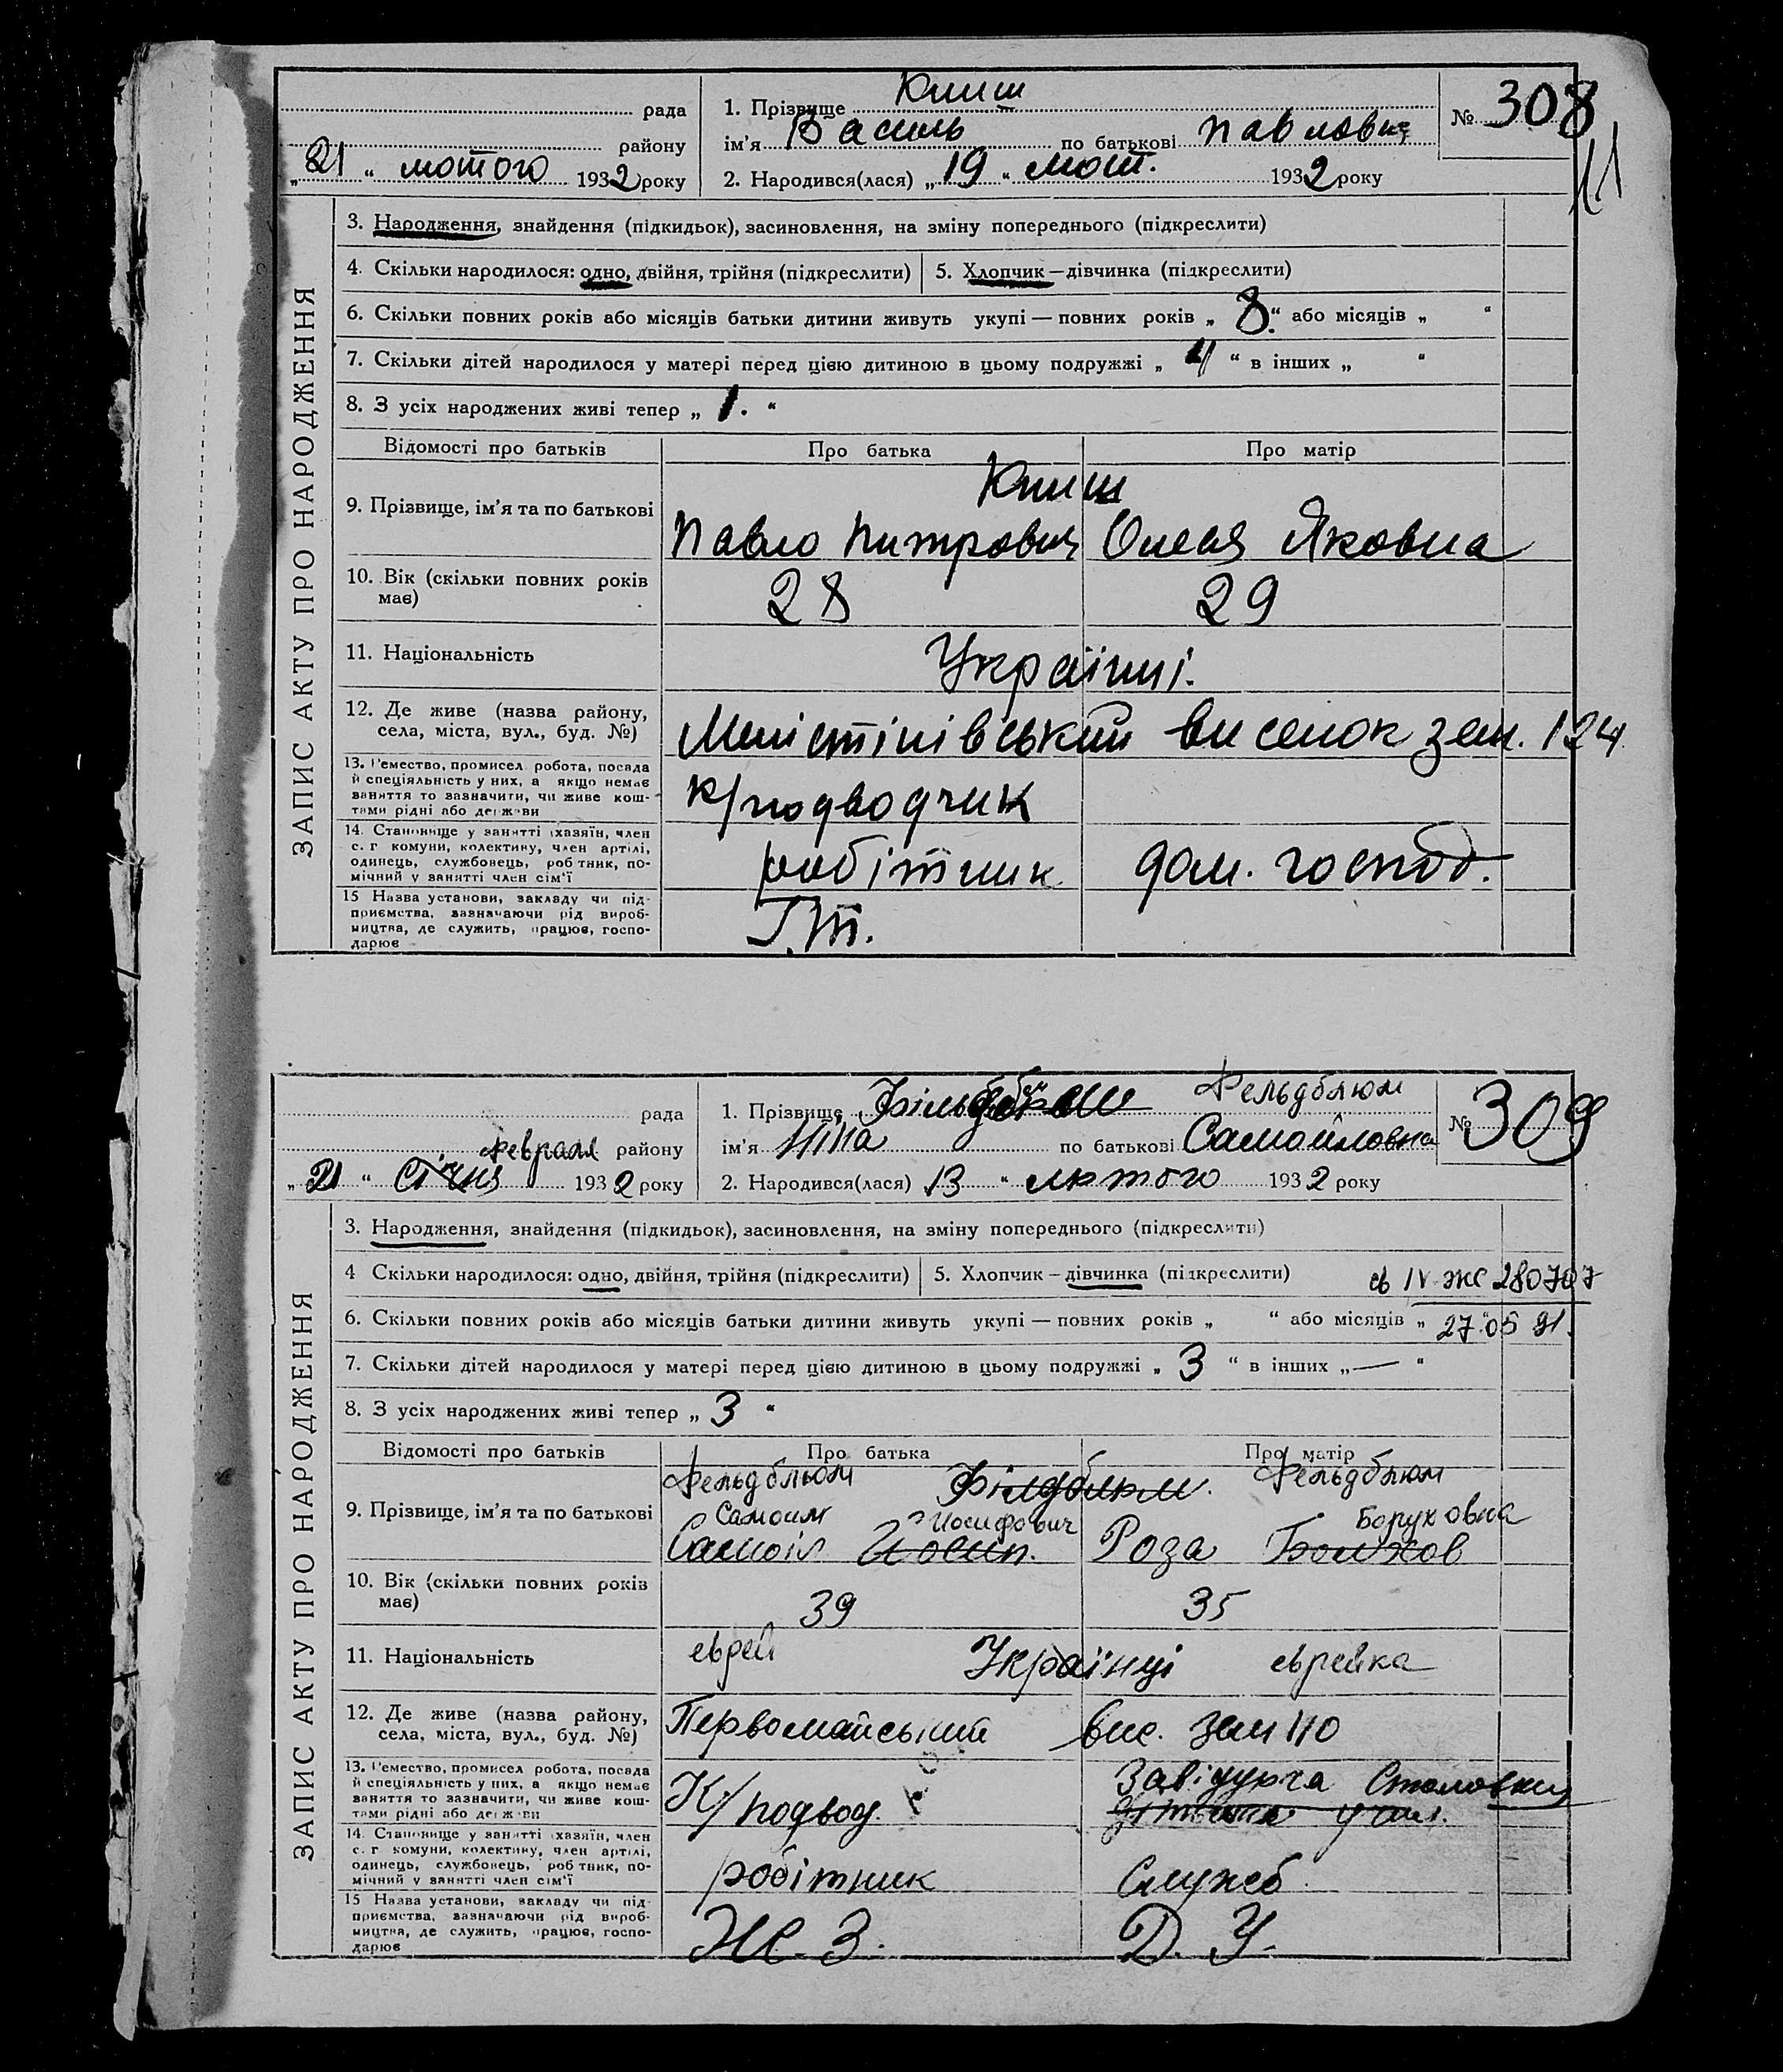 рада
району
„ 21 “ лютого 1932 року
1. Прізвище Книш
ім'я Василь по батькові Павлович
2. Народився(лася) „ 19 “ лют. 1932 року
№ 308
ЗАПИС АКТУ ПРО НАРОДЖЕННЯ
3. Народження, знайдення (підкидьок), засиновлення, на зміну попереднього (підкреслити)
4. Скільки народилося: одно, двійня, трійня (підкреслити) 5. Хлопчик — дівчинка (підкреслити)
6. Скільки повних років або місяців батьки дитини живуть укупі — повних років „ 8 “ або місяців „ “
7. Скільки дітей народилося у матері перед цією дитиною в цьому подружжі „ “ в інших „ “
8. З усіх народжених живі тепер „ 1. “
Відомості про батьків Про батька Про матір
Книш
9. Прізвище, ім'я та по батькові Павло Питрович Олеся Яковна
10. Вік (скільки повних років має) 28 29
11. Національність Українці.
12. Де живе (назва району, села, міста, вул., буд. №) висилок зем. 124
13. Ремество, промисел, робота, посада й спеціяльність у них, а якщо немає заняття то зазначити, чи живе коштами рідні або держави к/подводчик
14. Становище у занятті (хазяїн, член с. г комуни, колективу, член артілі, одинець, службовець, робітник, помічний у занятті член сім'ї робітник дом. господ.
15 Назва установи, закладу чи підприємства, зазначаючи рід виробництва, де служить, працює, господарює Г.Т.
рада
февраля району
„ 21 “ Січня 1932 року
1. Прізвище Фельдблюм
ім'я Ніна по батькові Самойловна
2. Народився(лася) 13 “ лютого 1932 року
№ 309
ЗАПИС АКТУ ПРО НАРОДЖЕННЯ
3. Народження, знайдення (підкидьок), засиновлення, на зміну попереднього (підкреслити)
4 Скільки народилося: одно, двійня, трійня (підкреслити) 5. Хлопчик — дівчинка (підкреслити) св IV-ЖС 280707
6. Скільки повних років або місяців батьки дитини живуть укупі — повних років „ “ або місяців „ 27.05 91.
7. Скільки дітей народилося у матері перед цією дитиною в цьому подружжі „ 3 “ в інших „ — “
8. З усіх народжених живі тепер „ 3 “
Відомості про батьків Про батька Про матір
Фельдблюм Філдблюм. Фельдблюм
Самоил Иосифович Боруховна
9. Прізвище, ім'я та по батькові Самоіл Йосип. Роза
10. Вік (скільки повних років має) 39 35
11. Національність еврей Українці еврейка
12. Де живе (назва району, села, міста, вул., буд. №) Первомайський вис. зем 110
13. Ремество, промисел, робота, посада й спеціяльність у них, а якщо немає заняття то зазначити, чи живе коштами рідні або держави К/подвод. Завідуюча Столовки
14. Становище у занятті (хазяїн, член с. г комуни, колективу, член артілі, одинець, службовець, робітник, помічний у занятті член сім'ї робітник Служб
15 Назва установи, закладу чи підприємства, зазначаючи рід виробництва, де служить, працює, господарює Ж. З. Д. У.